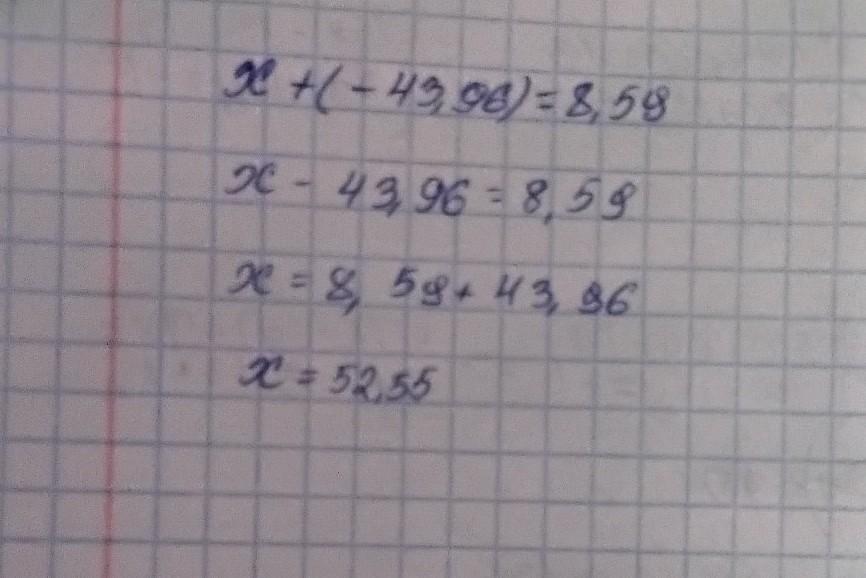 x + (- 43,96) = 8,59
x - 43,96 = 8,59
x = 8, 59 + 43, 96
x = 52,55